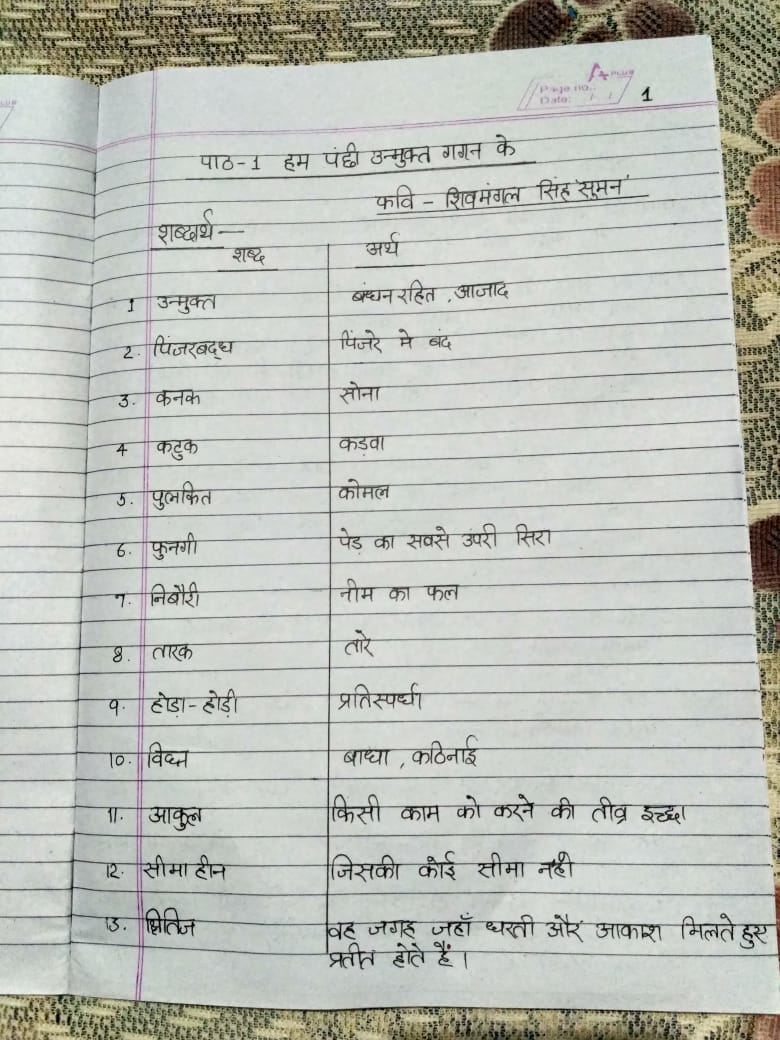 A PLUS
Page no.:
Date: / /
1
पाठ-1 हम पंछी उन्मुक्त गगन के
कवि - शिवमंगल सिंह 'सुमन'
शब्दार्थ —
शब्द अर्थ
1 उन्मुक्त बंधन रहित , आजाद
2. पिंजरबद्ध पिंजरे मे बंद
3. कनक सोना
4 कटुक कड़वा
5. पुलकित कोमल
6. फुनगी पेड़ का सबसे उपरी सिरा
7. निबौरी नीम का फल
8. तारक तारे
9. होड़ा-होड़ी प्रतिस्पर्धा
10. विघ्न बाधा , कठिनाई
11. आकुल किसी काम को करने की तीव्र इच्छा
12. सीमा हीन जिसकी कोई सीमा नही
13. क्षितिज वह जगह जहाँ धरती और आकाश मिलते हुए
प्रतीत होते हैं ।